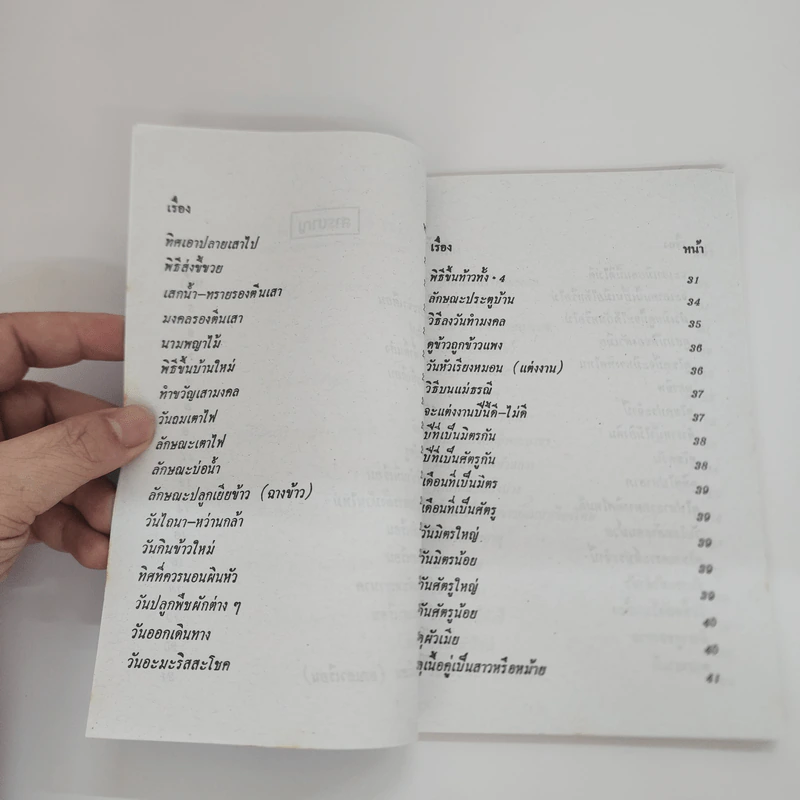 เรื่อง
ทิศเอาปลายเสาไป
พิธีส่งขี้ขวย
เสกน้ำ–ทรายรองตีนเสา
มงคลรองตีนเสา
นามพญาไม้
พิธีขึ้นบ้านใหม่
ทำขวัญเสามงคล
วันถมเตาไฟ
ลักษณะเตาไฟ
ลักษณะบ่อน้ำ
ลักษณะปลูกเยียข้าว (ฉางข้าว)
วันไถนา–หว่านกล้า
วันกินข้าวใหม่
ทิศที่ควรนอนผินหัว
วันปลูกพืชผักต่าง ๆ
วันออกเดินทาง
วันอะมะริสสะโชค
เรื่อง หน้า
พิธีขึ้นท้าวทั้ง 4 31
ลักษณะประตูบ้าน 34
วิธีลงวันทำมงคล 35
ดูข้าวถูกข้าวแพง 36
วันหัวเรียงหมอน (แต่งงาน) 36
วิธีบนแม่ธรณี 37
จะแต่งงานปีนี้ดี–ไม่ดี 37
ปีที่เป็นมิตรกัน 38
ปีที่เป็นศัตรูกัน 38
เดือนที่เป็นมิตร 39
เดือนที่เป็นศัตรู 39
วันมิตรใหญ่ 39
วันมิตรน้อย 39
วันศัตรูใหญ่ 39
วันศัตรูน้อย 40
ดูผัวเมีย 40
ดูเนื้อคู่เป็นสาวหรือหม้าย 41